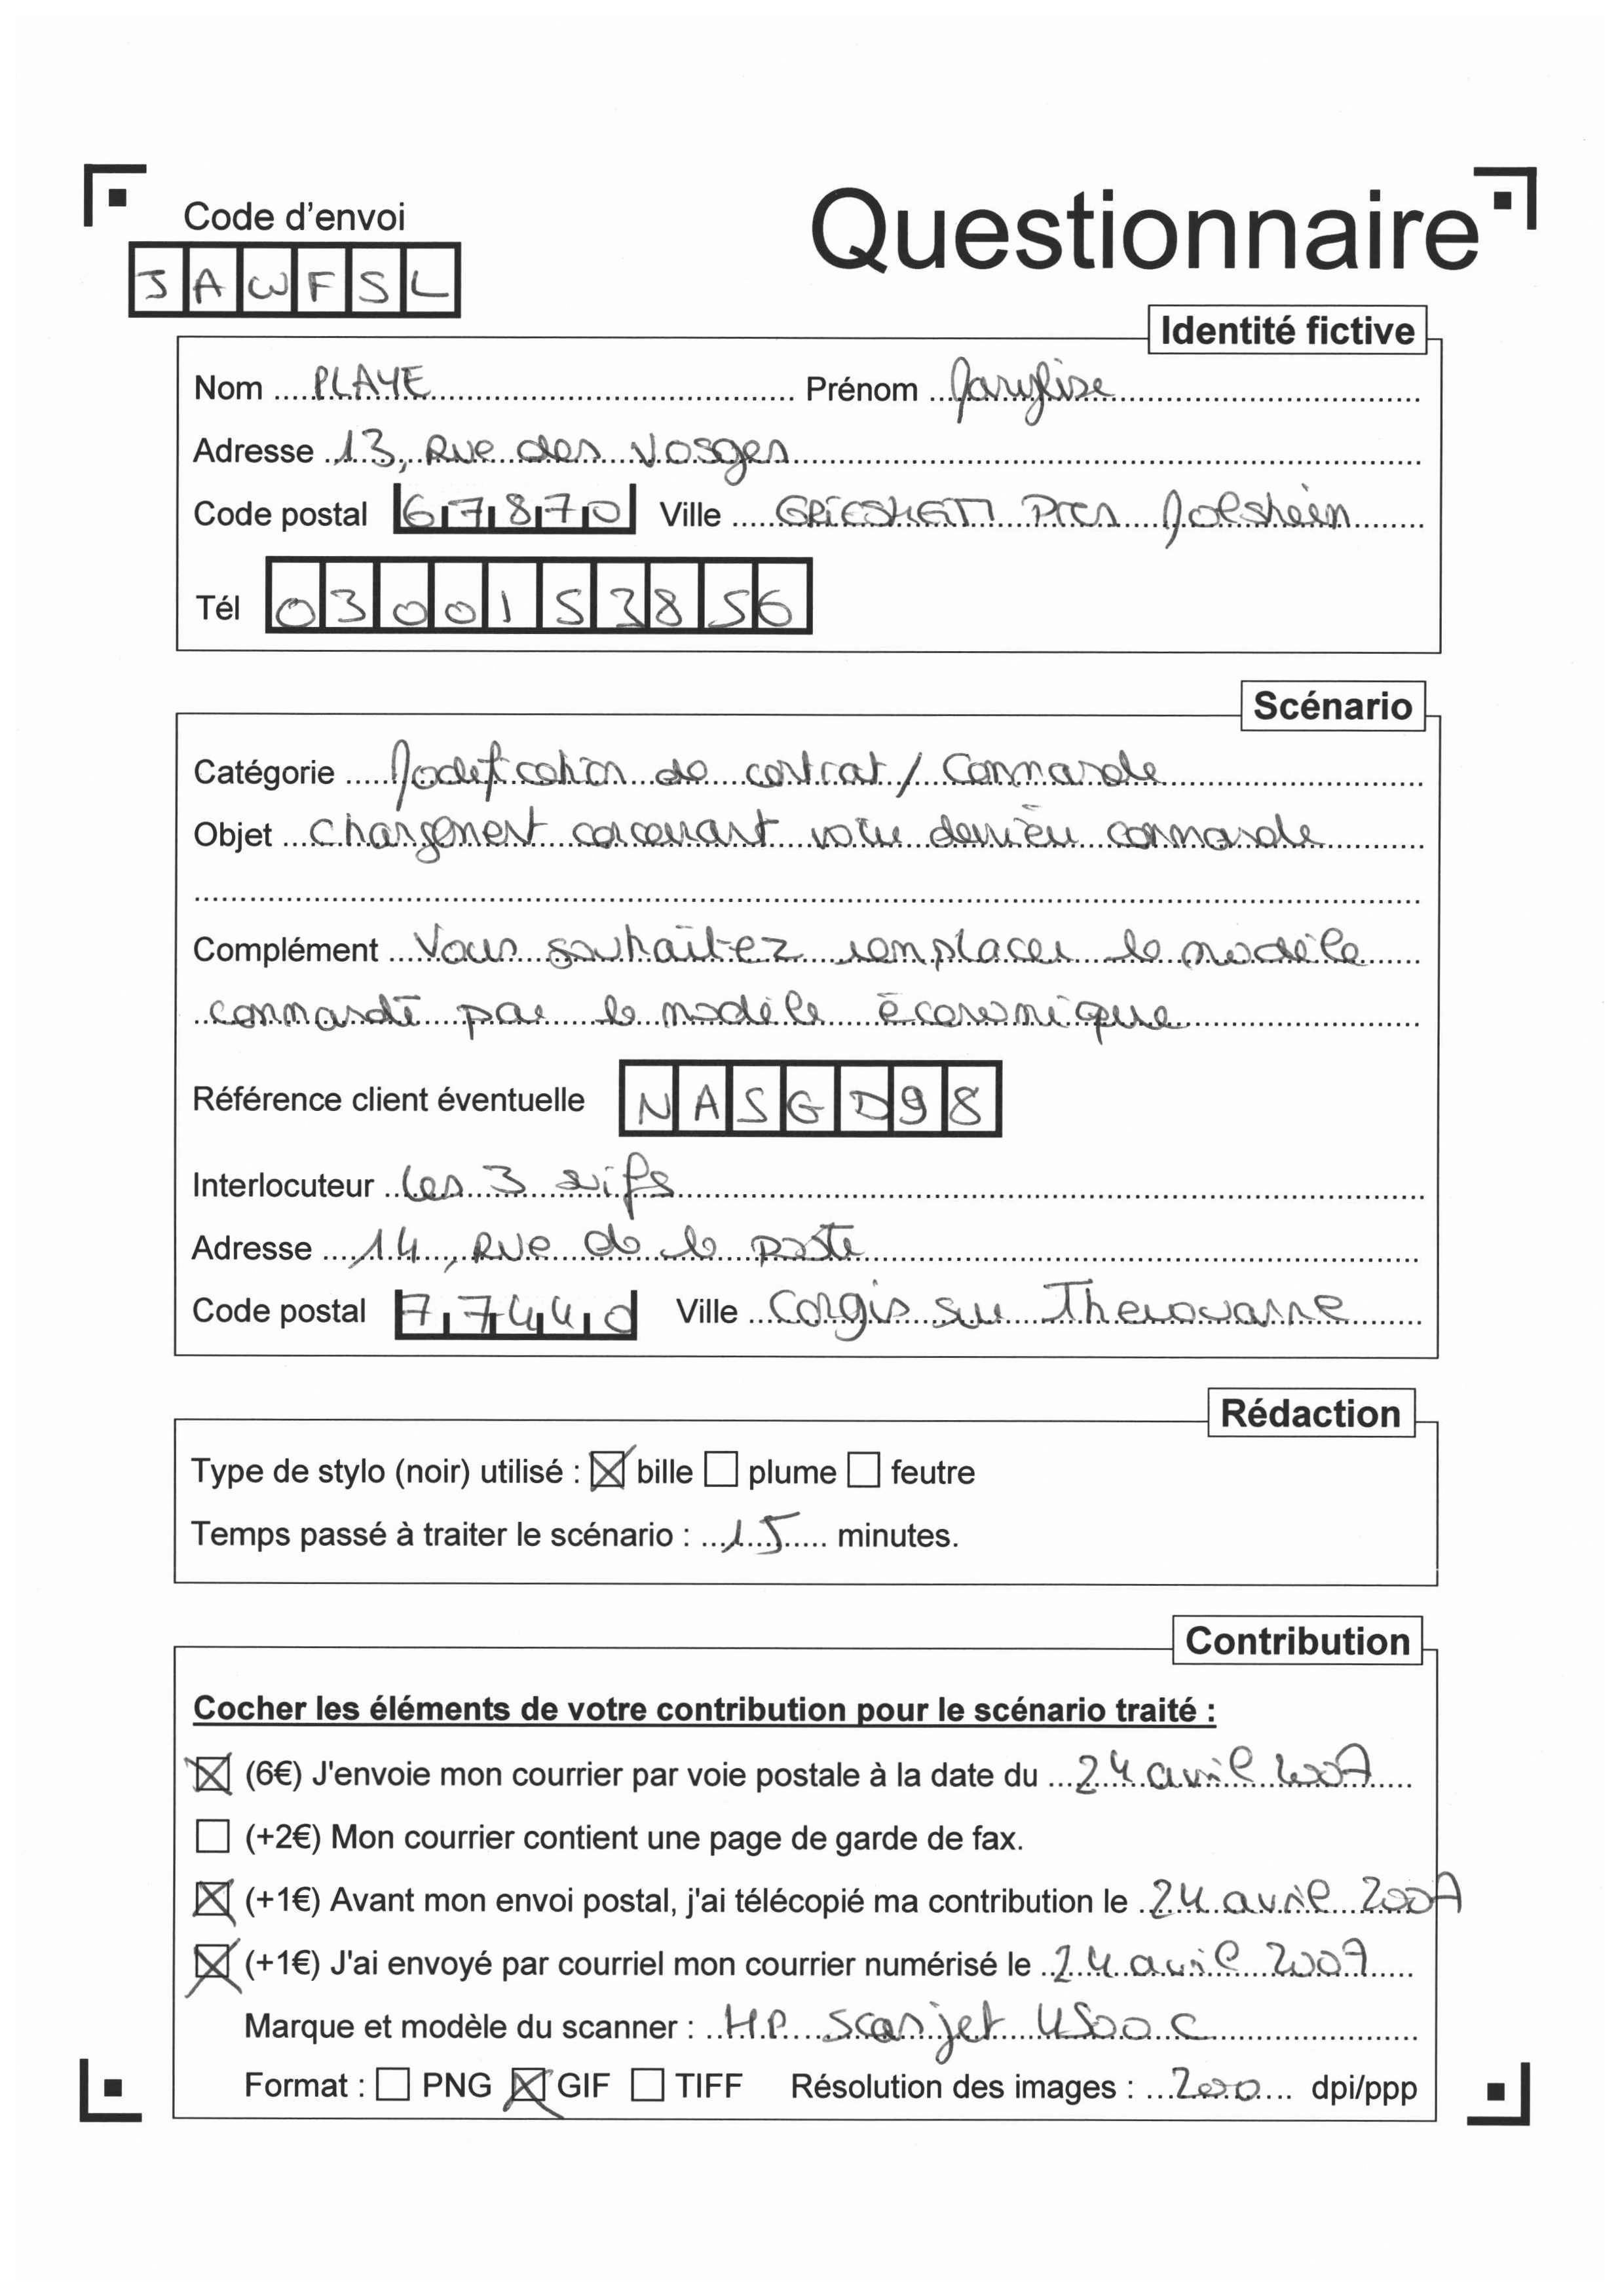 Code d'envoi
Questionnaire
J A W F S L
Identité fictive
Nom PLAYE Prénom Marylise
Adresse 13, Rue des Vosges
Code postal 67870 Ville GRIESHEIM Pres Molsheim
Tél 0300153856
Scénario
Catégorie Modification de contrat / Commande
Objet Changement concernant votre dernière commande
Complément Vous souhaitez remplacer le modèle
commandé par le modèle économique
Référence client éventuelle NASGD98
Interlocuteur Les 3 ifs
Adresse 14, Rue de la poste
Code postal 77440 Ville Congis sur Therouanne
Rédaction
Type de stylo (noir) utilisé : ☒ bille ☐ plume ☐ feutre
Temps passé à traiter le scénario : 15 minutes.
Contribution
Cocher les éléments de votre contribution pour le scénario traité :
☒ (6€) J'envoie mon courrier par voie postale à la date du 24 avril 2007
☐ (+2€) Mon courrier contient une page de garde de fax.
☒ (+1€) Avant mon envoi postal, j'ai télécopié ma contribution le 24 avril 2007
☒ (+1€) J'ai envoyé par courriel mon courrier numérisé le 24 avril 2007
Marque et modèle du scanner : HP scanjet 4500 C
Format : ☐ PNG ☒ GIF ☐ TIFF Résolution des images : 200 dpi/ppp